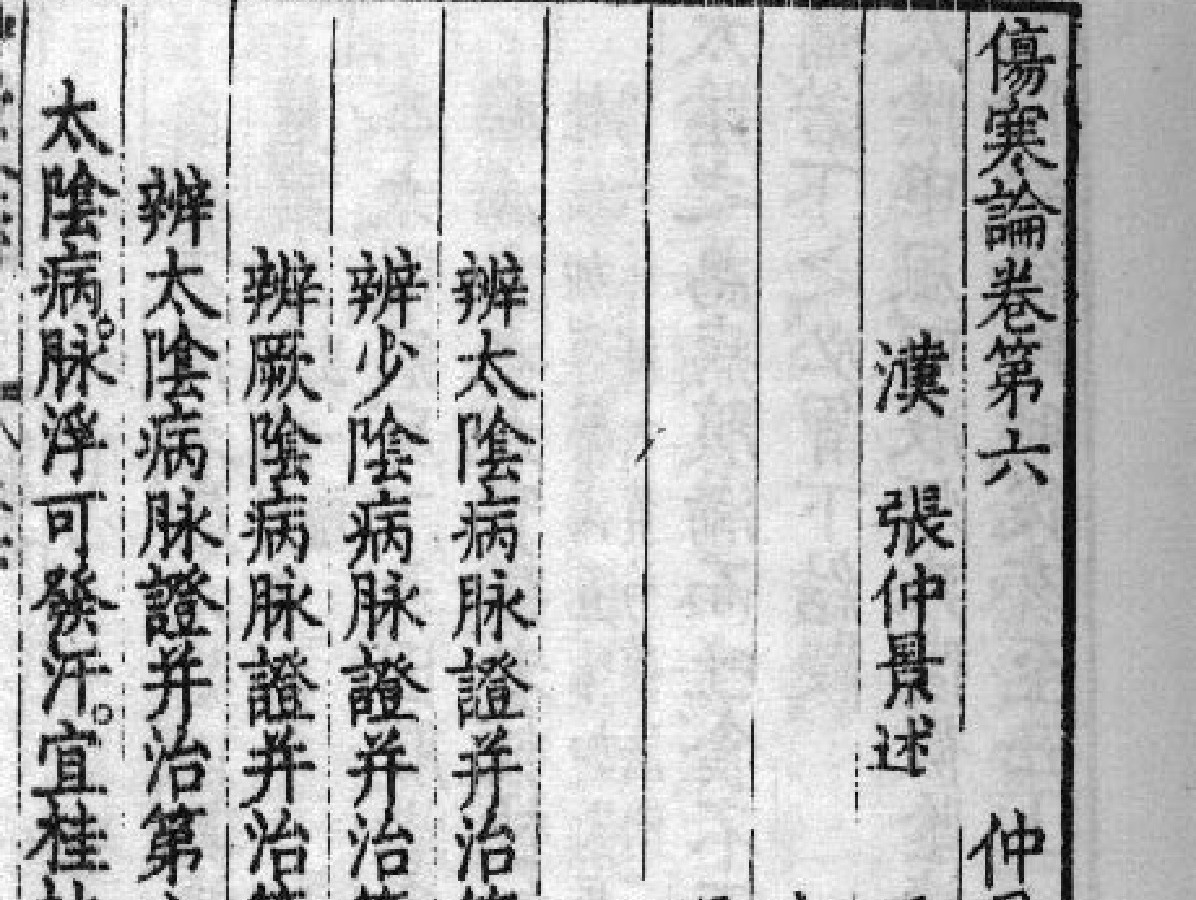 傷寒論卷第六 仲
漢 張仲景述
辨太陰病脉證并治
辨少陰病脉證并治
辨厥陰病脉證并治
辨太陰病脉證并治第
太陰病。脉浮可發汗。宜桂